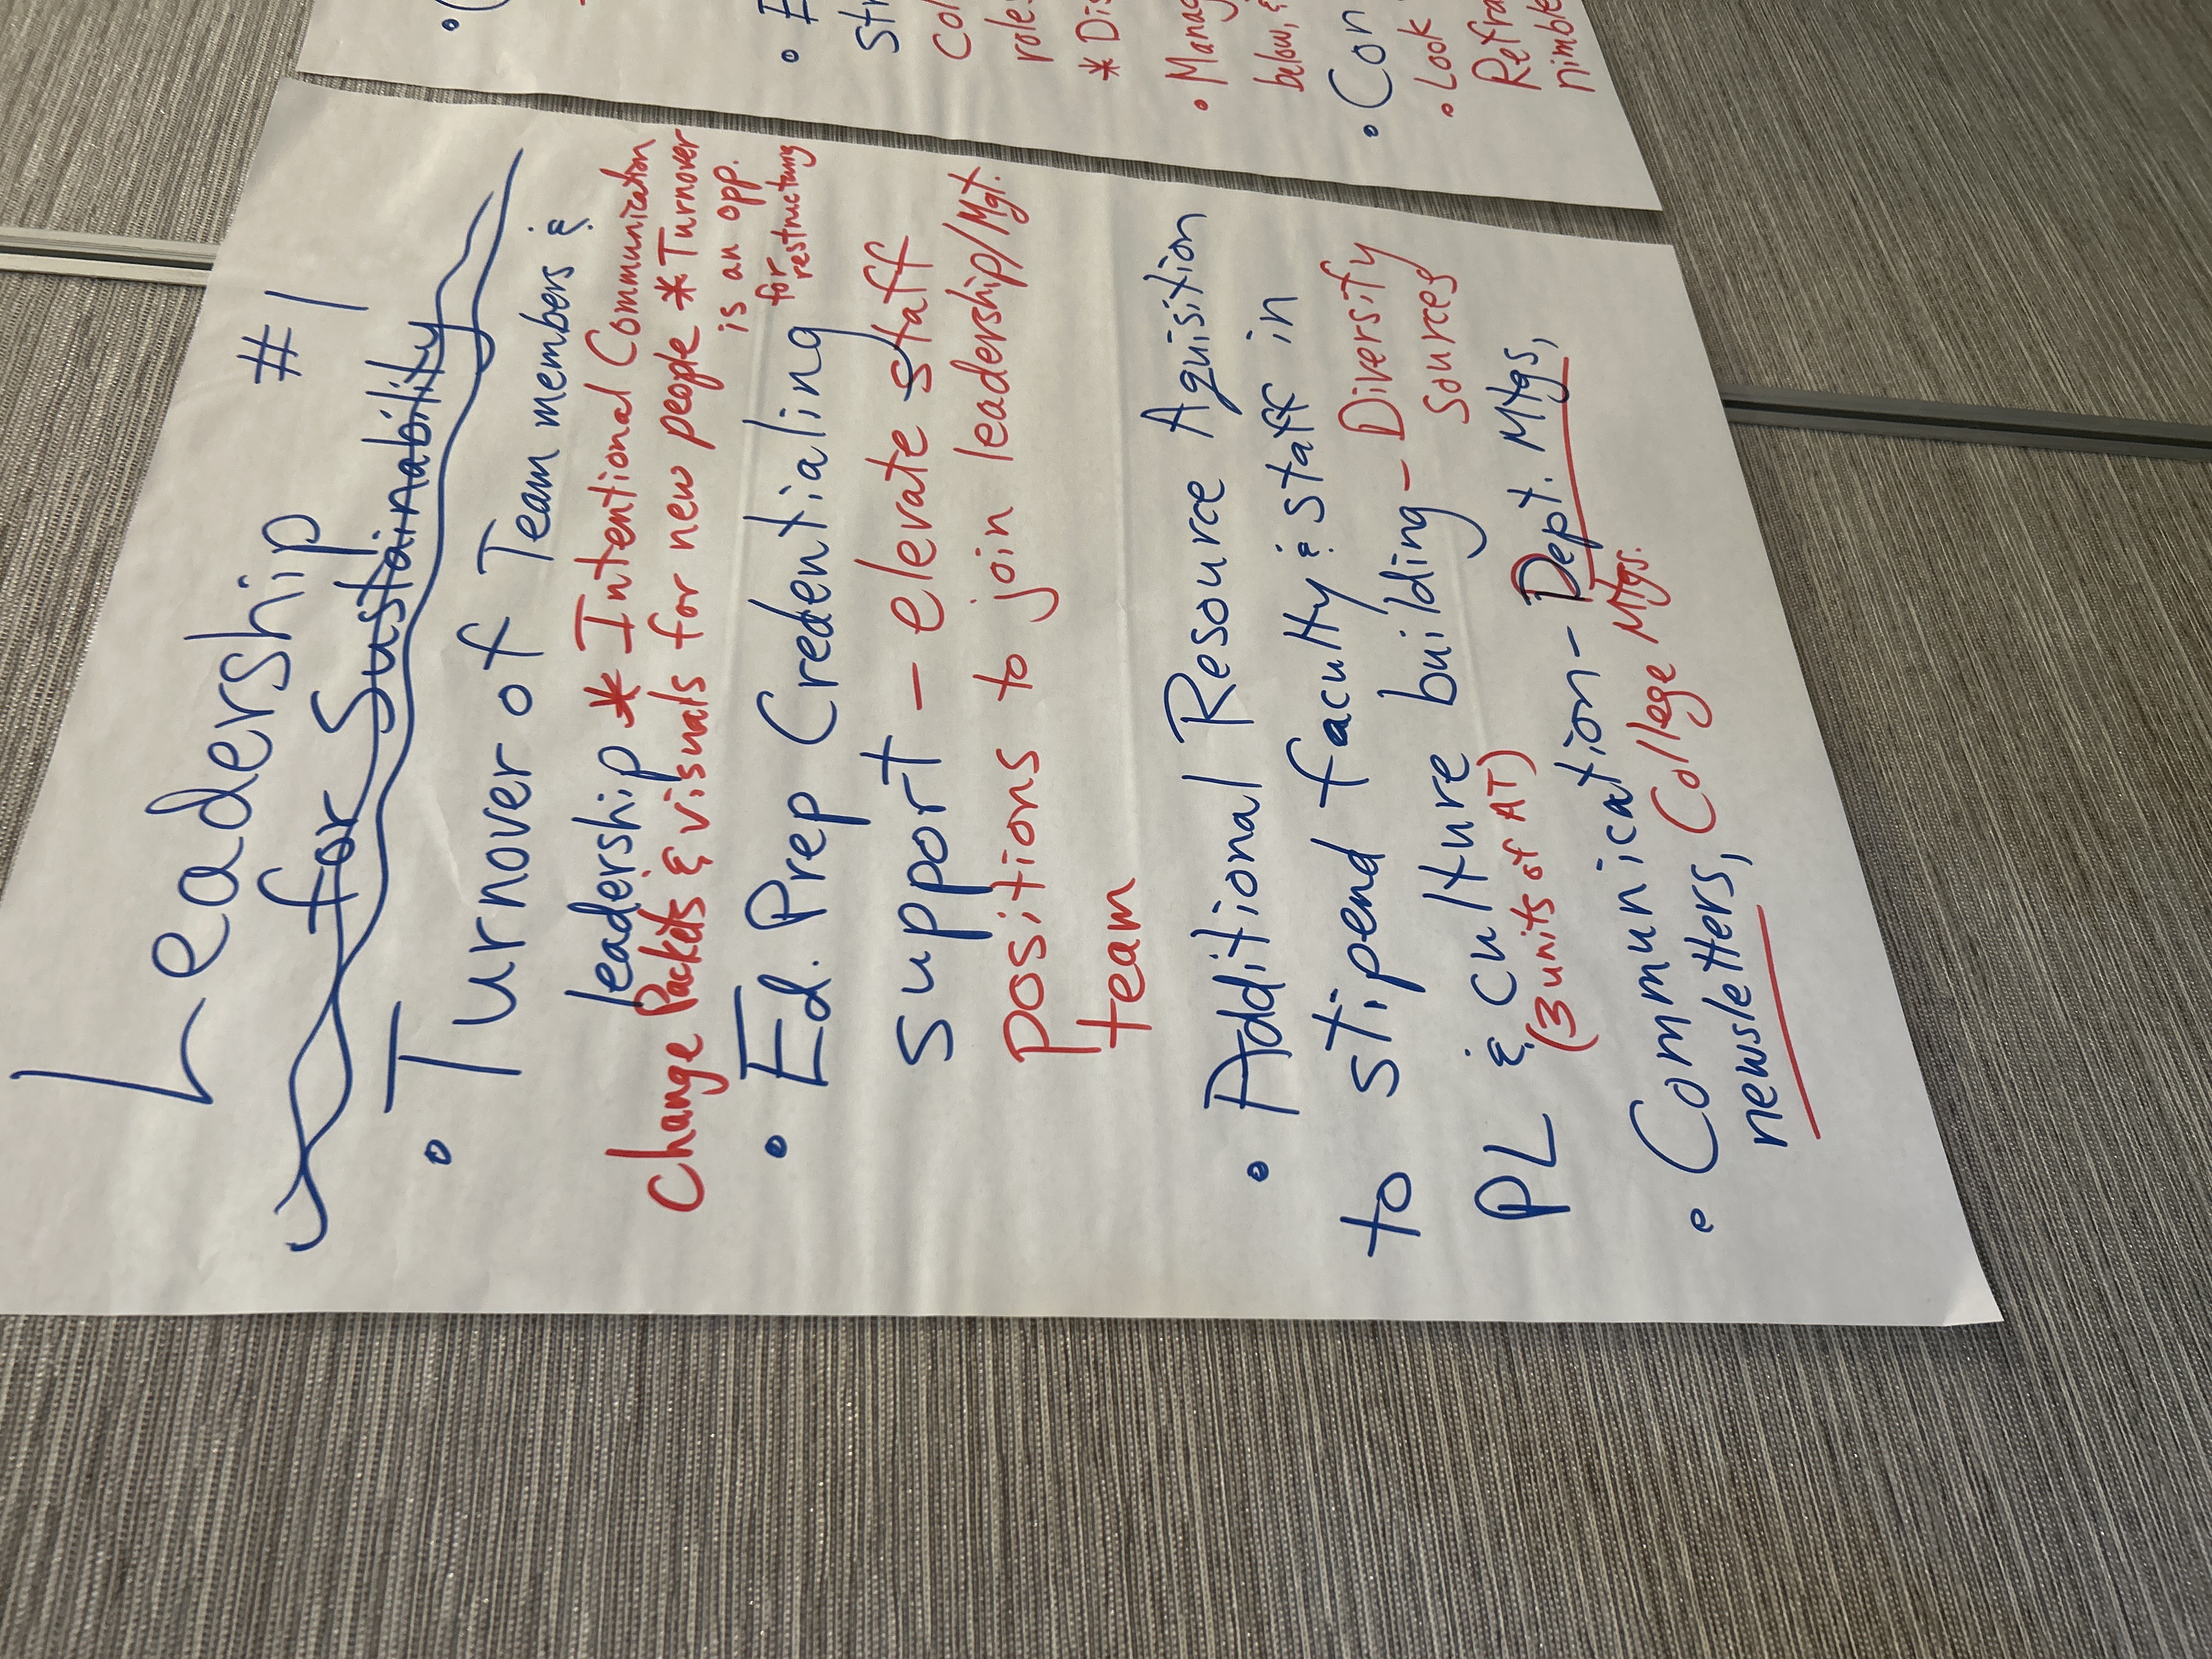 Leadership #1
for Sustainability
• Turnover of Team members &
leadership * Intentional Communication
Change Packets & visuals for new people * Turnover
is an opp.
for
restructuring
• Ed. Prep Credentialing
support - elevate staff
positions to join leadership/Mgt.
team
• Additional Resource Aquisition
to stipend faculty & staff in
PL & culture building - Diversify
sources
(3 units of AT)
• Communication - Dept. Mtgs,
newsletters, College Mtgs.
•
•
str
col
role
* Dis
• Manag
below, &
• Con
• Look
Refra
nimble